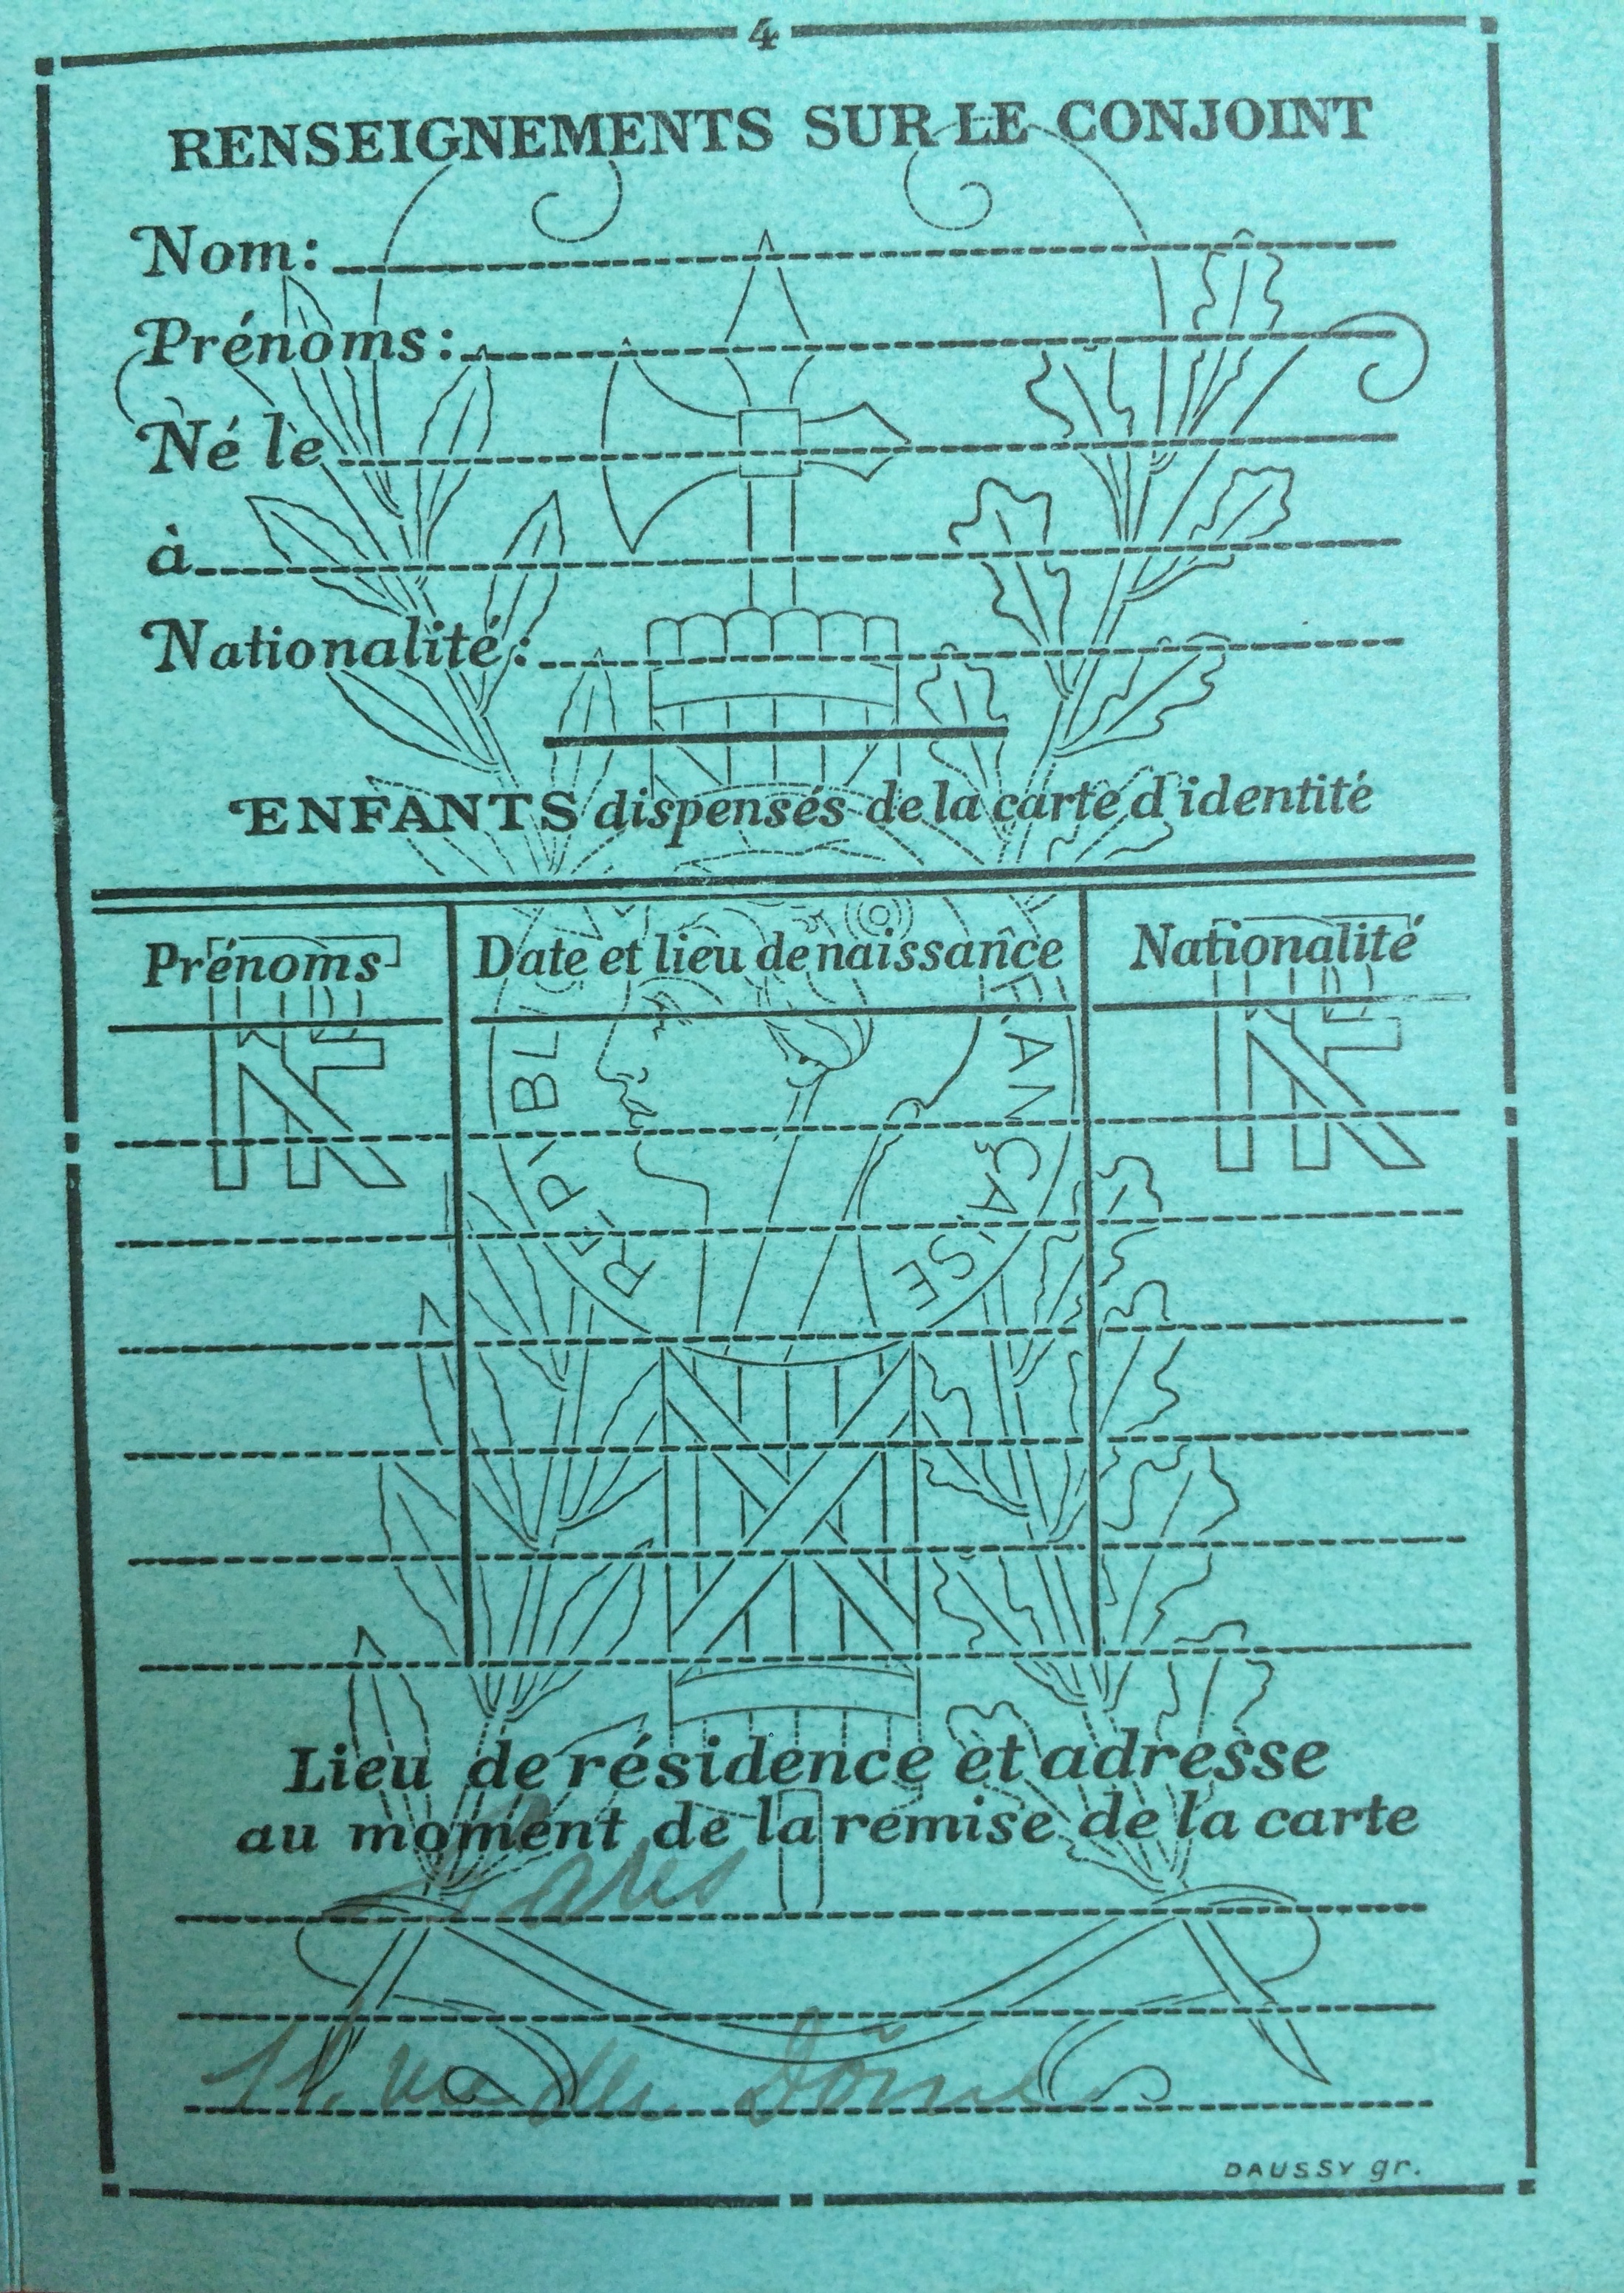 4
RENSEIGNEMENTS SUR LE CONJOINT
Nom:
Prénoms:
Né le
à
Nationalité:
ENFANTS dispensés de la carte d'identité
Prénoms
Date et lieu de naissance
Nationalité
RF
RÉPVBLIQVE FRANÇAISE
RF
Lieu de résidence et adresse
au moment de la remise de la carte
Paris
11,
DAUSSY gr.